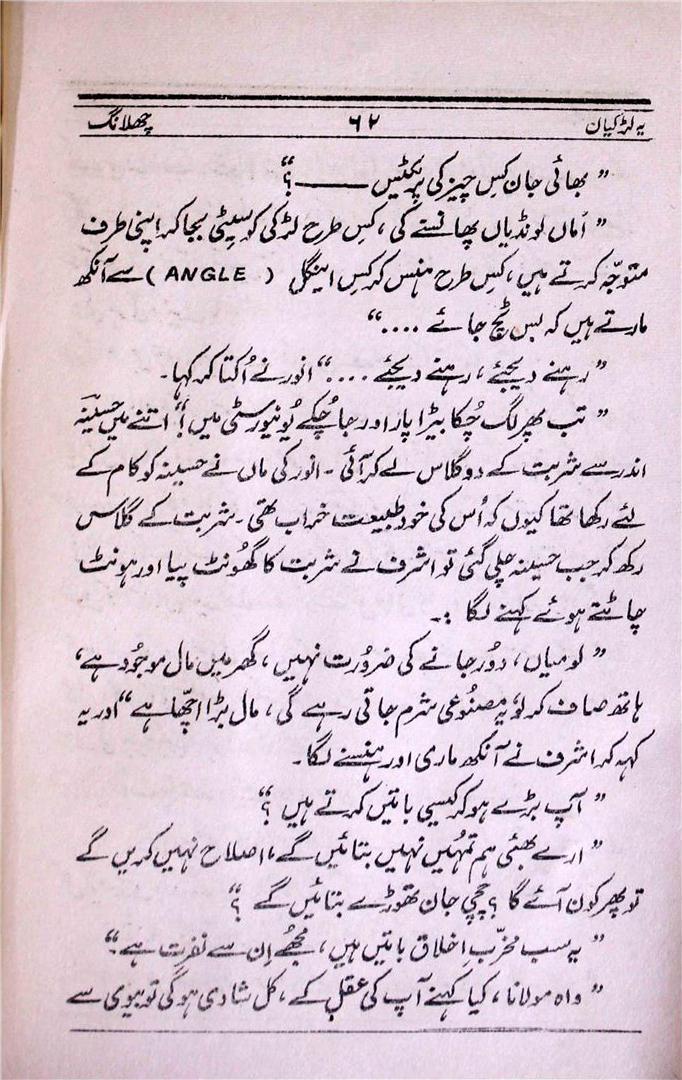 یہ لڑکیاں ۶۲ چھلانگ
” بھائی جان کس چیز کی پریکٹیس ——— ؟“
” اماں لونڈیاں پھانسنے کی، کس طرح لڑکی کو سیٹی بجا کر اپنی طرف
متوجّہ کرتے ہیں، کس طرح ہنس کر کس اینگل ( ANGLE ) سے آنکھ
مارتے ہیں کہ بس پچ جائے ....“
” رہنے دیجئے، رہنے دیجئے ....“ انور نے اُکتا کر کہا۔
” تب پھر لگ چُکا بیڑا پار اور جا چُکے یُونیورسٹی میں !“ اتنے میں حسینہ
اندر سے شربت کے دو گلاس لے کر آئی ۔ انور کی ماں نے حسینہ کو کام کے
لئے رکھا تھا کیوں کہ اُس کی خود طبیعت خراب تھی ۔ شربت کے گلاس
رکھ کر جب حسینہ چلی گئی تو اشرف نے شربت کا گھُونٹ پیا اور ہونٹ
چاٹتے ہوئے کہنے لگا :۔
” لو میاں، دُور جانے کی ضرُورت نہیں، گھر میں مال موجُود ہے،
ہاتھ صاف کر لو، یہ مصنُوعی شرم جاتی رہے گی، مال بڑا اچّھا ہے“ اور یہ
کہہ کر اشرف نے آنکھ ماری اور ہنسنے لگا۔
” آپ بڑے ہو کر کیسی باتیں کرتے ہیں ؟“
” ارے بھئی ہم تمہُیں نہیں بتائیں گے، اصلاح نہیں کریں گے
تو پھر کون آئے گا ؟ چچی جان تھوڑے بتائیں گے ؟“
” یہ سب مخرّب اخلاق باتیں ہیں، مجُھے اِن سے نفرت ہے۔“
” واہ مولانا، کیا کہنے آپ کی عقل کے، کل شادی ہو گی تو بیوی سے